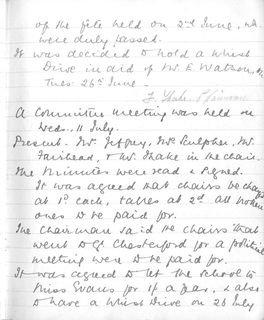 of the fête held on 2nd June, wh.
were duly passed.
It was decided to hold a Whist
Drive in aid of Mr. E. Watson, on
Tues. 26th June.
A Committee meeting was held on
Weds., 11 July.
Present. Mr. Jeffrey, Mr. Sculpher, Mr.
Fairhead, & Mr. Thake in the chair.
The Minutes were read & signed.
It was agreed that chairs be charged
at 1d. each, tables at 2d. all broken
ones to be paid for.
The Chairman said the chairs that
went to Gt. Chesterford for a political
meeting were to be paid for.
It was agreed to let the school to
Miss Evans for a year, & also
to have a Whist Drive on 26 July